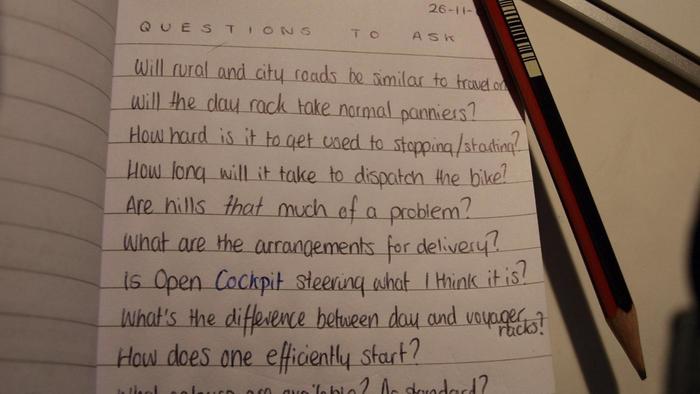 26-11-
QUESTIONS TO ASK
Will rural and city roads be similar to travel on
Will the day rack take normal panniers?
How hard is it to get used to stopping/starting?
How long will it take to dispatch the bike?
Are hills that much of a problem?
What are the arrangements for delivery?
Is Open Cockpit steering what I think it is?
What's the difference between day and voyager
racks?
How does one efficiently start?
What colours are available? As standard?